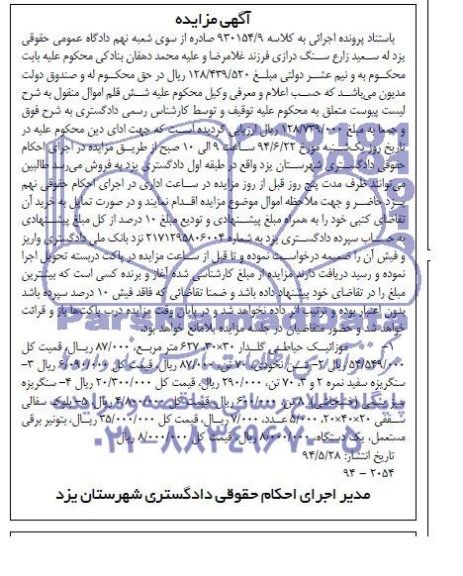 آگهی مزایده
باستناد پرونده اجرائی به کلاسه ۹۳۰۱۵۴/۹ صادره از سوی شعبه نهم دادگاه عمومی حقوقی
یزد له سعید زارع سنگ درازی فرزند غلامرضا و علیه محمد دهقان بنادکی محکوم علیه بابت
محکوم به و نیم عشر دولتی مبلغ ۱۲۸/۴۳۹/۵۲۰ ریال در حق محکوم له و صندوق دولت
مدیون می‌باشد که حسب اعلام و معرفی وکیل محکوم علیه شش قلم اموال منقول به شرح
لیست پیوست متعلق به محکوم علیه توقیف و توسط کارشناس رسمی دادگستری به شرح فوق
و جمعا به مبلغ ۱۲۸/۷۳۹/۰۰۰ ریال ارزیابی گردیده است که جهت ادای دین محکوم علیه در
تاریخ روز یک‌شنبه مورخ ۹۴/۶/۲۲ ساعت ۹ الی ۱۰ صبح از طریق مزایده در اجرای احکام
حقوقی دادگستری شهرستان یزد واقع در طبقه اول دادگستری یزد به فروش می‌رسد طالبین
می‌توانند ظرف مدت پنج روز قبل از روز مزایده در ساعت اداری در اجرای احکام حقوقی نهم
یزد حاضر و جهت ملاحظه اموال موضوع مزایده اقدام نمایند و در صورت تمایل به خرید آن
تقاضای کتبی خود را به همراه مبلغ پیشنهادی و تودیع مبلغ ۱۰ درصد از کل مبلغ پیشنهادی
به حساب سپرده دادگستری یزد به شماره ۲۱۷۱۲۹۵۸۰۶۰۰۴ نزد بانک ملی دادگستری واریز
و فیش آن را ضمیمه درخواست نموده و تا قبل از ساعت مزایده در پاکت دربسته تحویل اجرا
نموده و رسید دریافت دارند مزایده از مبلغ کارشناسی شده آغاز و برنده کسی است که بیشترین
مبلغ را در تقاضای خود پیشنهاد داده باشد و ضمنا تقاضائی که فاقد فیش ۱۰ درصد سپرده باشد
بدون اعتبار بوده و ترتیب اثر داده نخواهد شد و در پایان وقت مزایده درب پاکت‌ها باز و قرائت
خواهد شد و حضور متقاضیان در جلسه مزایده بلامانع خواهد بود.
۱- موزائیک حیاطی گلدار ۳۰×۳۰، ۶۲۷ متر مربع، ۸۷/۰۰۰ ریال، قیمت کل
۵۴/۵۴۹/۰۰۰ ریال ۲- شن نخودی، ۷۰ تن، ۸۷/۰۰۰ ریال، قیمت کل ۶/۰۹۰/۰۰۰ ریال ۳-
سنگریزه سفید نمره ۲ و ۳، ۷۰ تن، ۲۹۰/۰۰۰ ریال، قیمت کل ۲۰/۳۰۰/۰۰۰ ریال ۴- سنگریزه
سبز یشمی (خشخاشی) ۸ تن، ۶۰۰/۰۰۰ ریال، قیمت کل ۴/۸۰۰/۰۰۰ ریال، ۵- بلوک سفالی
سقفی ۲۰×۴۰×۲۰، ۵/۰۰۰ عدد، ۷/۰۰۰ ریال، قیمت کل ۳۵/۰۰۰/۰۰۰ ریال، بتونیر برقی
مستعمل، یک دستگاه، ۸/۰۰۰/۰۰۰ ریال، قیمت کل ۸/۰۰۰/۰۰۰ ریال
تاریخ انتشار: ۹۴/۵/۲۸
۲۰۵۴ - ۹۴
مدیر اجرای احکام حقوقی دادگستری شهرستان یزد
۰۲۱-۸۸۳۴۹۶۷۰-۵